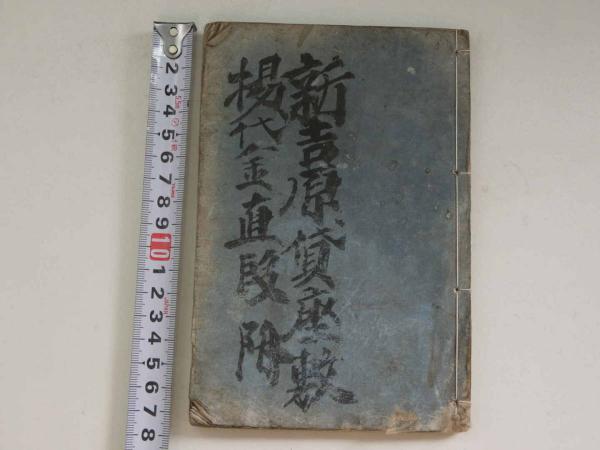 新吉原貸座敷
揚代金直段附
2
3
4
5
6
7
8
9
10
1
2
3
4
5
6
7
8